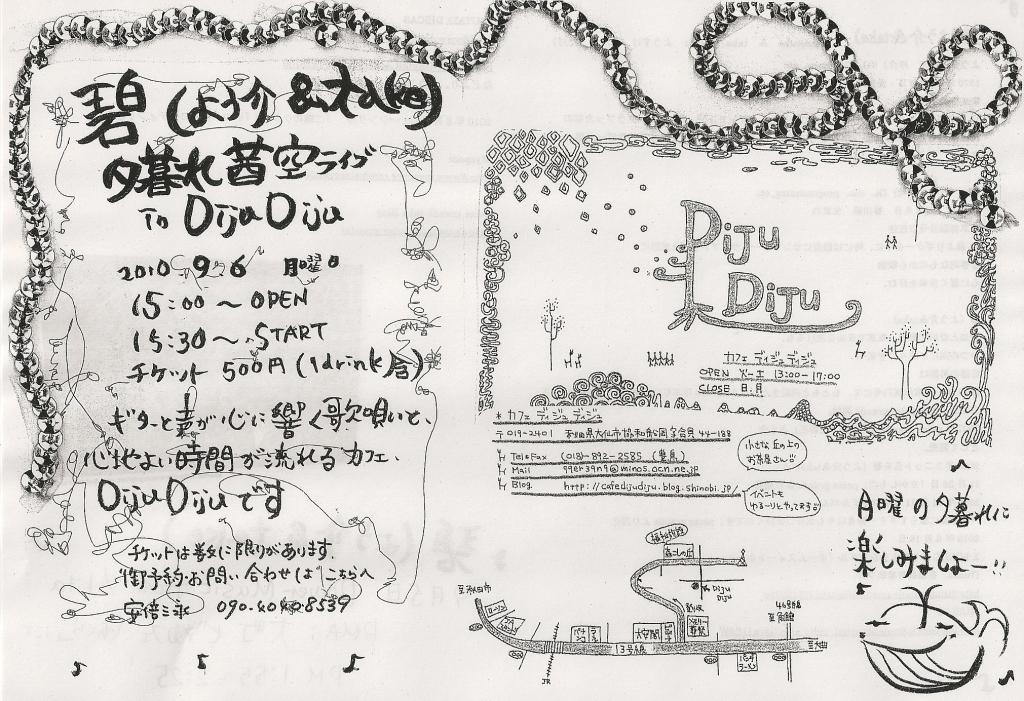 碧 (よう介 & take)
夕暮れ茜空ライブ
in Diju Diju
2010 9 6 月曜日
15:00〜OPEN
15:30〜START
チケット 500円 (1drink含)
ギターと声が心に響く歌唄いと、
心地よい時間が流れるカフェ、
Diju Dijuです
チケットは数に限りがあります。
御予約・お問い合わせは こちらへ
DiJU
DiJU
カフェ ディジュ ディジュ
OPEN 火-土 13:00-17:00
CLOSE 日.月
* カフェ ディジュ ディジュ
〒019-2401
44-188
Tel&Fax (018)-892-2585
Mail 99er39n9@minos.ocn.ne.jp
Blog http://cafedijudiju.blog.shinobi.jp/
小さな丘の上の
お茶屋さん
イベントも
ゆる〜りとやってます
月曜の夕暮れに
楽しみましょー!!
DiJU
DiJU
至秋田市
ローソン
パチンコ
大安閣
13号線
JR
46号線
至角館
ラーメン